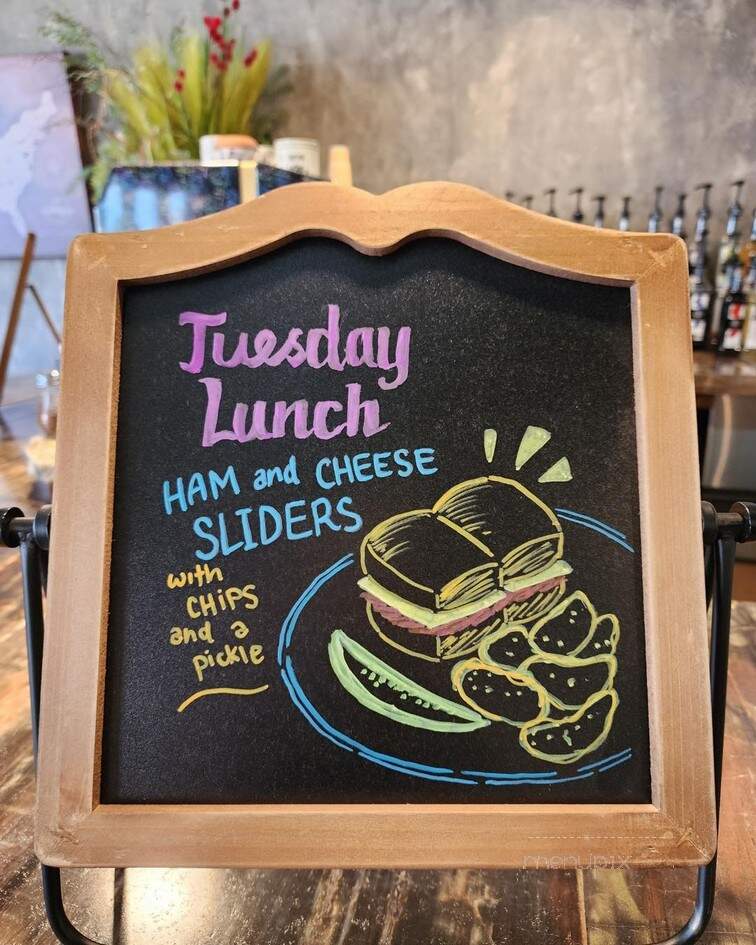 Tuesday
Lunch
HAM and CHEESE
SLIDERS
with
CHiPS
and a
pickle
menupix